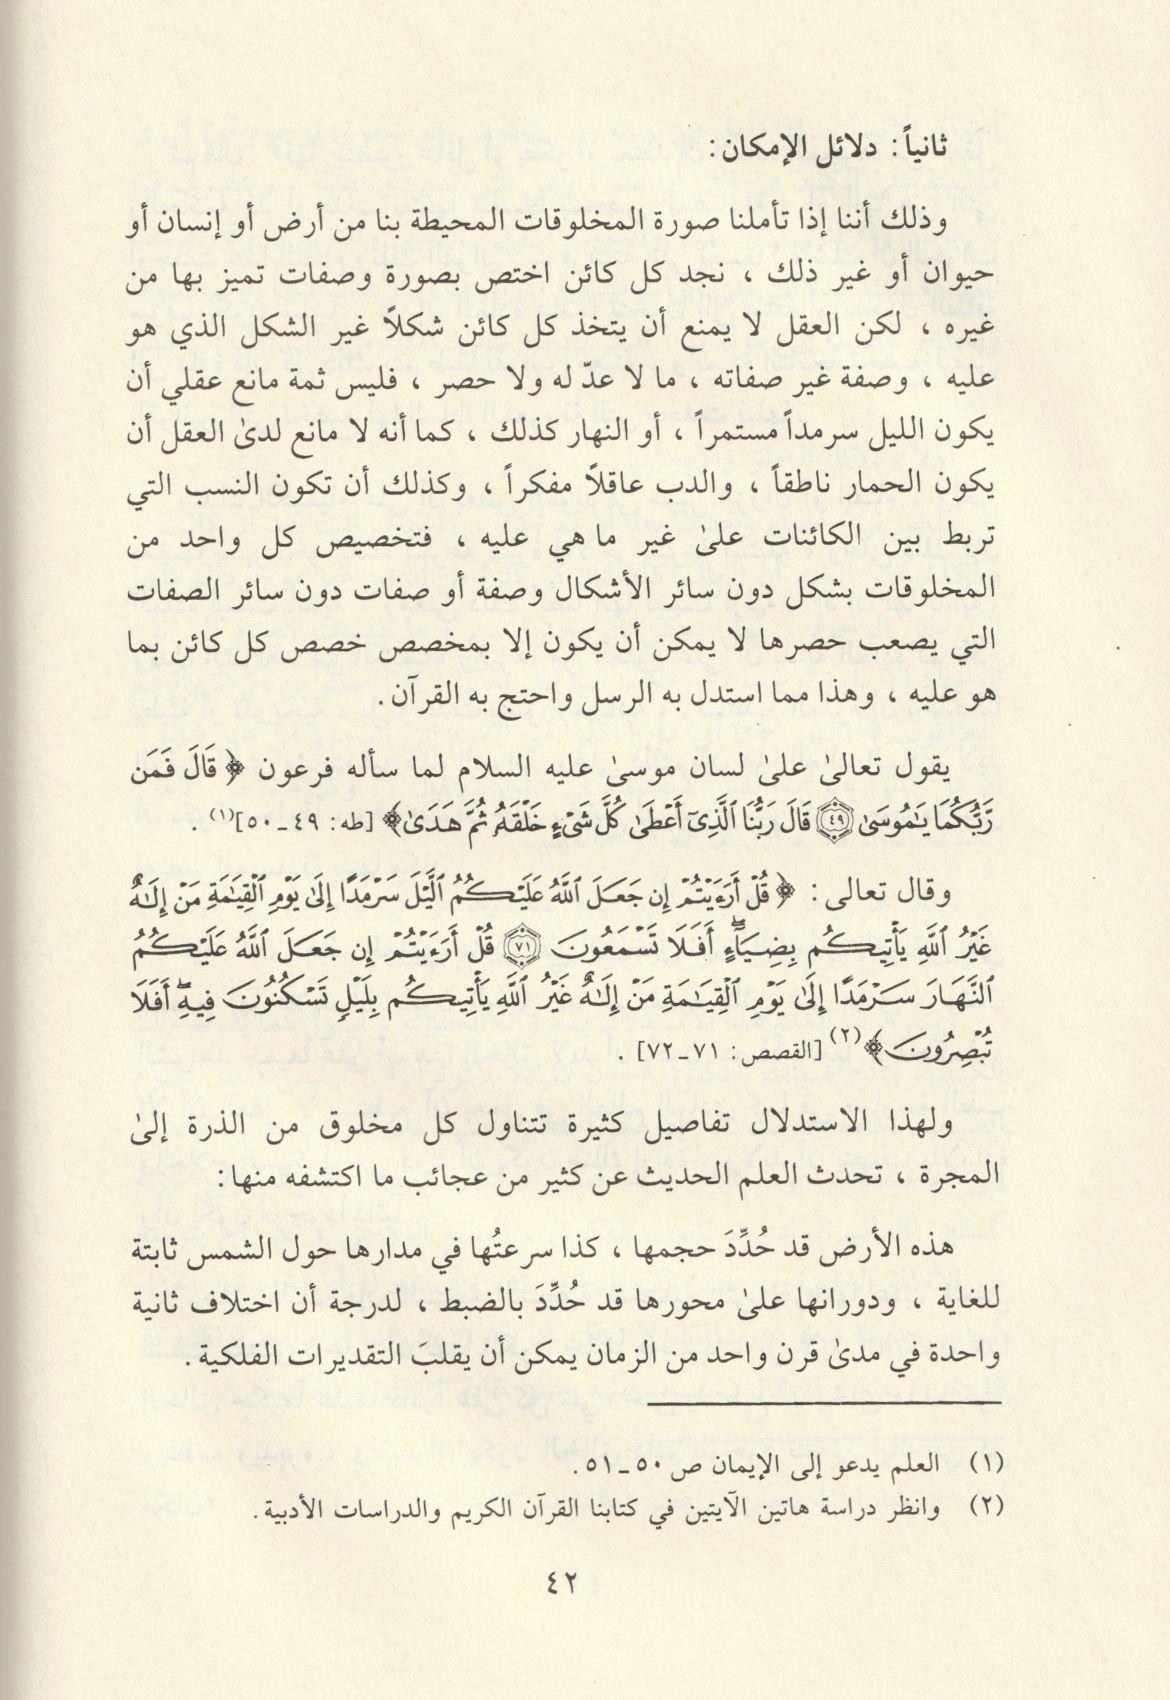 ثانياً: دلائل الإمكان:
وذلك أننا إذا تأملنا صورة المخلوقات المحيطة بنا من أرض أو إنسان أو
حيوان أو غير ذلك ، نجد كل كائن اختص بصورة وصفات تميز بها من
غيره ، لكن العقل لا يمنع أن يتخذ كل كائن شكلاً غير الشكل الذي هو
عليه ، وصفة غير صفاته ، ما لا عدّ له ولا حصر ، فليس ثمة مانع عقلي أن
يكون الليل سرمداً مستمراً ، أو النهار كذلك ، كما أنه لا مانع لدىٰ العقل أن
يكون الحمار ناطقاً ، والدب عاقلاً مفكراً ، وكذلك أن تكون النسب التي
تربط بين الكائنات علىٰ غير ما هي عليه ، فتخصيص كل واحد من
المخلوقات بشكل دون سائر الأشكال وصفة أو صفات دون سائر الصفات
التي يصعب حصرها لا يمكن أن يكون إلا بمخصص خصص كل كائن بما
هو عليه ، وهذا مما استدل به الرسل واحتج به القرآن.
يقول تعالىٰ علىٰ لسان موسىٰ عليه السلام لما سأله فرعون ﴿ قَالَ فَمَن
رَّبُّكُمَا يَٰمُوسَىٰ ٤٩ قَالَ رَبُّنَا ٱلَّذِىٓ أَعْطَىٰ كُلَّ شَىْءٍ خَلْقَهُۥ ثُمَّ هَدَىٰ﴾ [طه: ٤٩ـ٥٠](١) .
وقال تعالى : ﴿ قُلْ أَرَءَيْتُمْ إِن جَعَلَ ٱللَّهُ عَلَيْكُمُ ٱلَّيْلَ سَرْمَدًا إِلَىٰ يَوْمِ ٱلْقِيَٰمَةِ مَنْ إِلَٰهٌ
غَيْرُ ٱللَّهِ يَأْتِيكُم بِضِيَآءٍ ۖ أَفَلَا تَسْمَعُونَ ٧١ قُلْ أَرَءَيْتُمْ إِن جَعَلَ ٱللَّهُ عَلَيْكُمُ
ٱلنَّهَارَ سَرْمَدًا إِلَىٰ يَوْمِ ٱلْقِيَٰمَةِ مَنْ إِلَٰهٌ غَيْرُ ٱللَّهِ يَأْتِيكُم بِلَيْلٍ تَسْكُنُونَ فِيهِ ۖ أَفَلَا
تُبْصِرُونَ﴾(٢) [القصص: ٧١ـ٧٢] .
ولهذا الاستدلال تفاصيل كثيرة تتناول كل مخلوق من الذرة إلىٰ
المجرة ، تحدث العلم الحديث عن كثير من عجائب ما اكتشفه منها:
هذه الأرض قد حُدِّدَ حجمها ، كذا سرعتُها في مدارها حول الشمس ثابتة
للغاية ، ودورانها علىٰ محورها قد حُدِّدَ بالضبط ، لدرجة أن اختلاف ثانية
واحدة في مدىٰ قرن واحد من الزمان يمكن أن يقلبَ التقديرات الفلكية.
(١) العلم يدعو إلى الإيمان ص ٥٠ـ٥١.
(٢) وانظر دراسة هاتين الآيتين في كتابنا القرآن الكريم والدراسات الأدبية.
٤٢